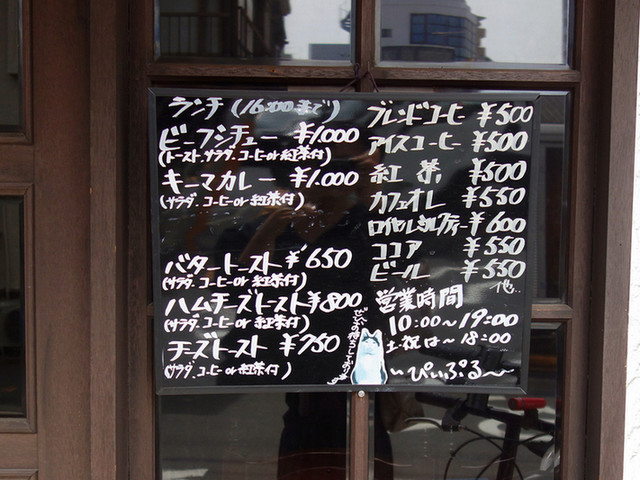 ランチ(16:00まで)
ビーフシチュー ¥1.000
(トースト.サラダ.コーヒーor紅茶付)
キーマカレー ¥1.000
(サラダ.コーヒーor紅茶付)
バタートースト ¥650
(サラダ.コーヒーor紅茶付)
ハムチーズトースト ¥800
(サラダ.コーヒーor紅茶付)
チーズトースト ¥750
(サラダ.コーヒーor紅茶付)
ブレンドコーヒー ¥500
アイスコーヒー ¥500
紅茶 ¥500
カフェオレ ¥550
ロイヤルミルクティー ¥600
ココア ¥550
ビール ¥550
他..
営業時間
10:00〜19:00
土.祝は〜18:00
ぴぃぷる